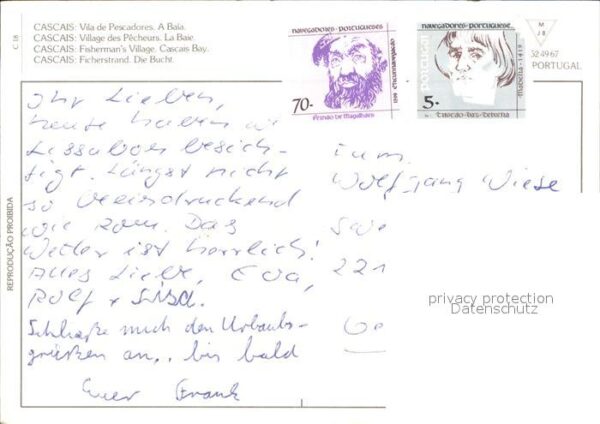 C 18
CASCAIS: Vila de Pescadores. A Baía.
CASCAIS: Village des Pêcheurs. La Baie.
CASCAIS: Fisherman's Village. Cascais Bay.
CASCAIS: Ficherstrand. Die Bucht.
NAVEGADORES·PORTUGUESES
70·
FERNÃO DE MAGALHÃES
NAVEGADORES·PORTUGUESES
PORTUGAL
5·
MADEIRA·1419
M
32 49 67
PORTUGAL
REPRODUÇÃO PROIBIDA
Ihr Lieben,
heute haben wi
Lissabon besich-
tigt. Längst nicht
so beeindruckend
wie Rom. Das
Wetter ist herrlich!
Alles Liebe, Eva,
Rolf + Lisa.
Schließe mich den Urlaubs-
grüßen an, .. bis bald
Euer Frank
Fam.
Wolfgang Wiese
221
privacy protection
Datenschutz